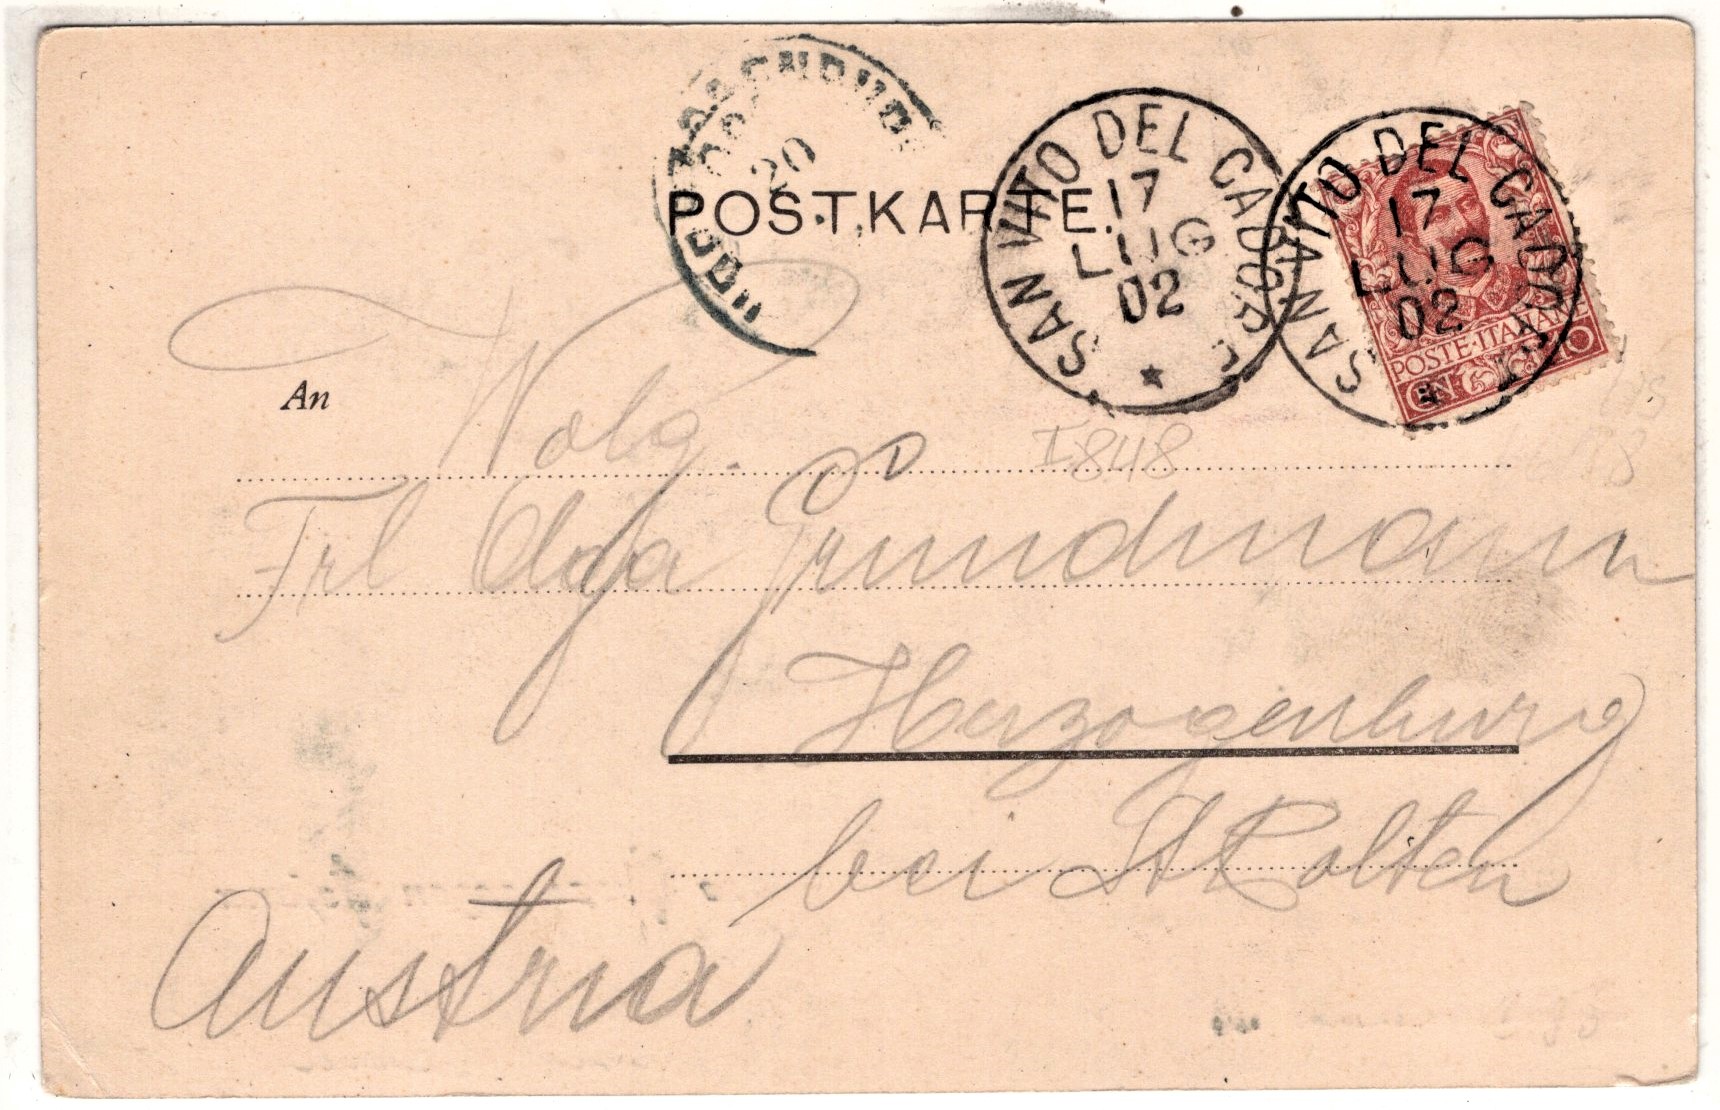 POSTKARTE.
20
SAN VITO DEL CADORE
17
LUG
02
SAN VITO DEL CADORE
17
LUG
02
POSTE·ITALIANE
10
An
Wolg.
I848
Frl Olga Grundmann
Herzogenburg
bei St Polten
Austria